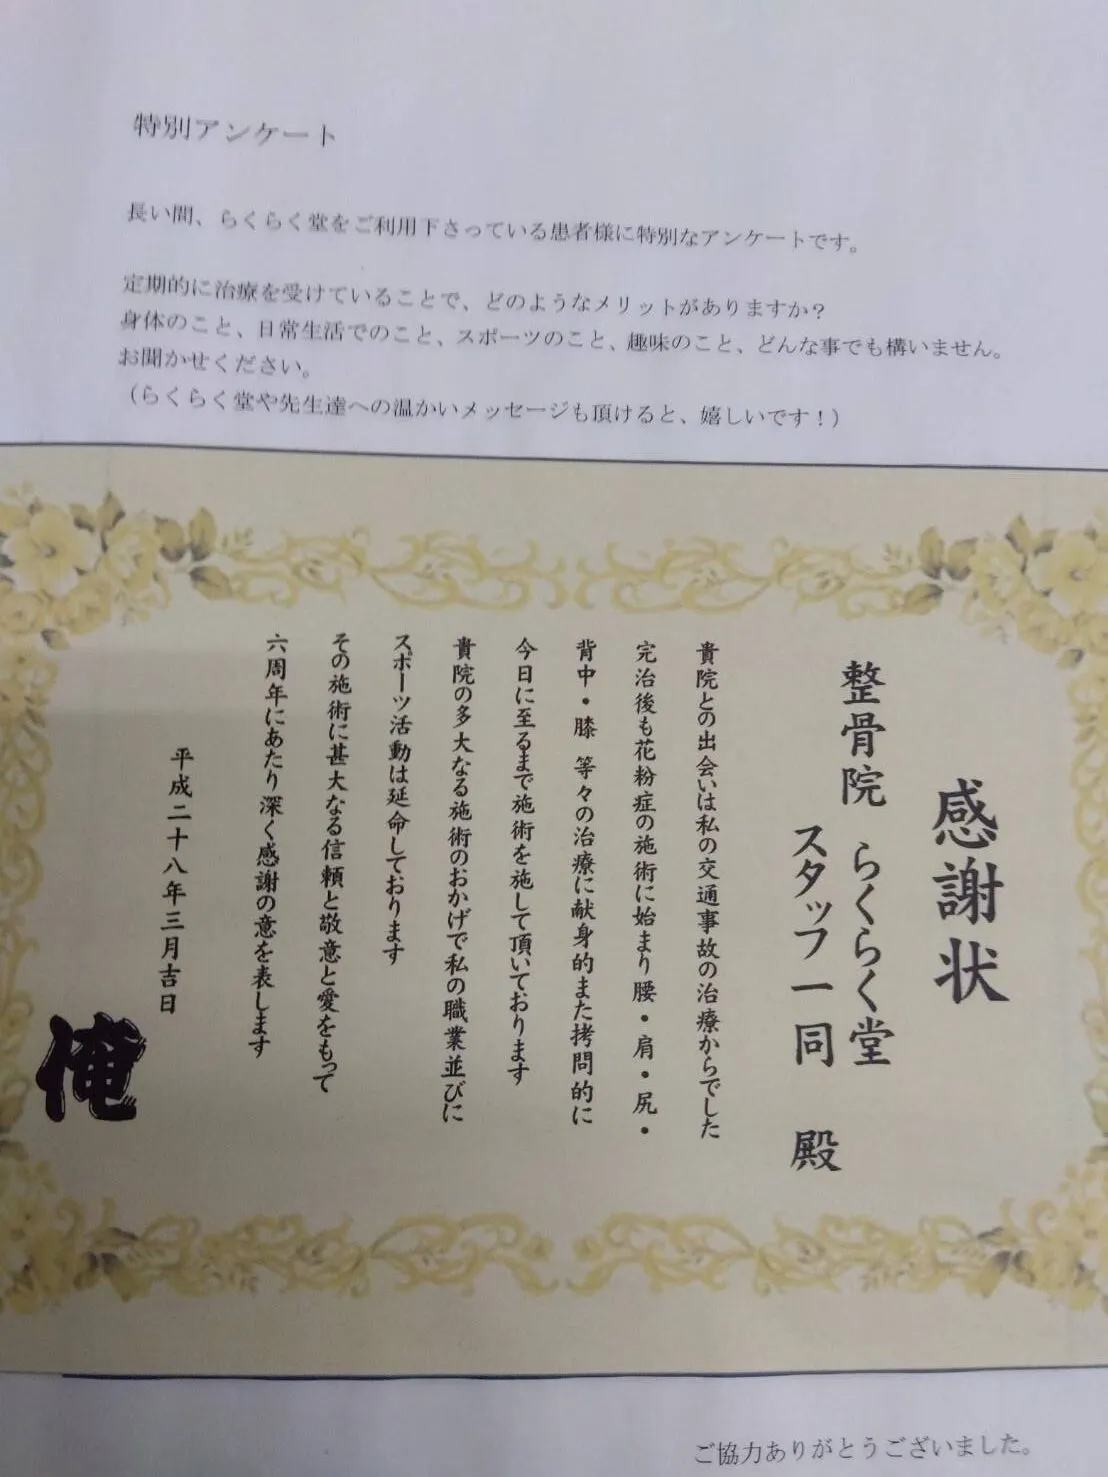 特別アンケート
長い間、らくらく堂をご利用下さっている患者様に特別なアンケートです。
定期的に治療を受けていることで、どのようなメリットがありますか?
身体のこと、日常生活でのこと、スポーツのこと、趣味のこと、どんな事でも構いません。
お聞かせください。
（らくらく堂や先生達への温かいメッセージも頂けると、嬉しいです！）
感謝状
整骨院 らくらく堂
スタッフ一同 殿
貴院との出会いは私の交通事故の治療からでした
完治後も花粉症の施術に始まり腰・肩・尻・
背中・膝 等々の治療に献身的また拷問的に
今日に至るまで施術を施して頂いております
貴院の多大なる施術のおかげで私の職業並びに
スポーツ活動は延命しております
その施術に甚大なる信頼と敬意と愛をもって
六周年にあたり深く感謝の意を表します
平成二十八年三月吉日
俺
ご協力ありがとうございました。